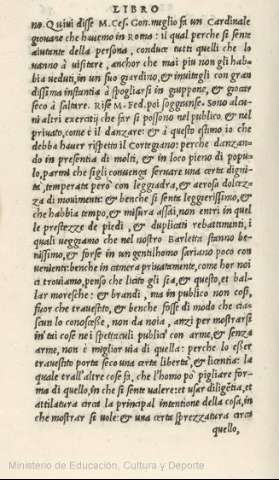 LIBRO
no. Quiui disse M. Ces. Con. meglio fa un Cardinale
giouane che hauemo in Roma: il qual perche si sente
aiutante della persona, conduce tutti quelli che lo
uanno à uisitare, anchor che mai piu non gli habbia
ueduti, in un suo giardino, & inuitagli con gran
dissima instantia à spogliarsi in giuppone, & giocar
seco à saltare. Rise M. Fed. poi soggiunse. Sono alcu
ni altri exercitij che far si possono nel publico, & nel
priuato, come è il danzare: & à questo estimo io che
debba hauer rispetto il Cortegiano: perche danzan
do in presentia di molti, & in loco pieno di popu
lo, parmi che sigli conuenga seruare una certa digni
tà, temperata però con leggiadra, & aerosa dolcez
za di mouimenti: & benche si senta leggierissimo, &
che habbia tempo, & misura assai, non entri in quel
le prestezze de piedi, & duplicati rebattimenti, i
quali ueggiamo che nel nostro Barletta stanno be-
nissimo, & forse in un gentilhomo sariano poco con
uenienti: benche in camera priuatamente, come hor noi
ci trouiamo, penso che licito gli sia, & questo, et bal
lar moresche: & brandi, ma in publico non così,
fuor che trauestito, & benche fosse di modo che cia
scun lo conoscesse, non da noia, anzi per mostrarsi
in tai cose nei spettaculi publici con arme, & senza
arme, non è miglior uia di quella: perche lo esser
trauestito porta seco una certa libertà, & licentia: la
quale trall'altre cose fa, che l'homo pò pigliare for-
ma di quello, in che si sente ualere: et usar diligētia, et
attilatura circa la principal intentione della cosa, in
che mostrar si uole: & una certa sprezzatura circa
quello,
Ministerio de Educación, Cultura y Deporte